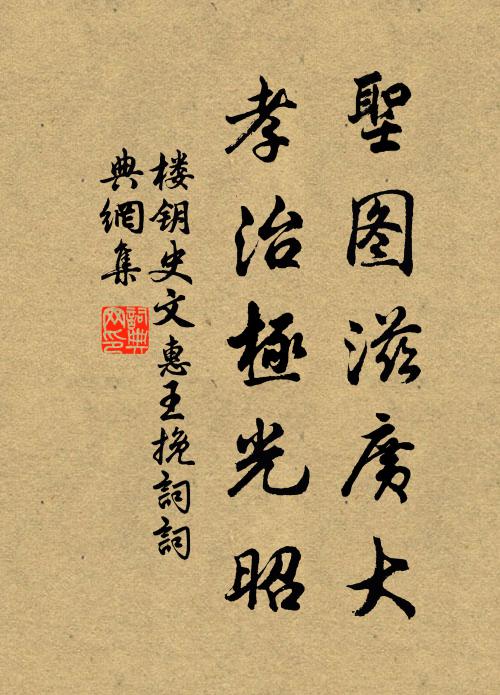 聖图滋廣大
孝治極光昭
楼钥史文惠王挽詞詞
典網集
詞典网印